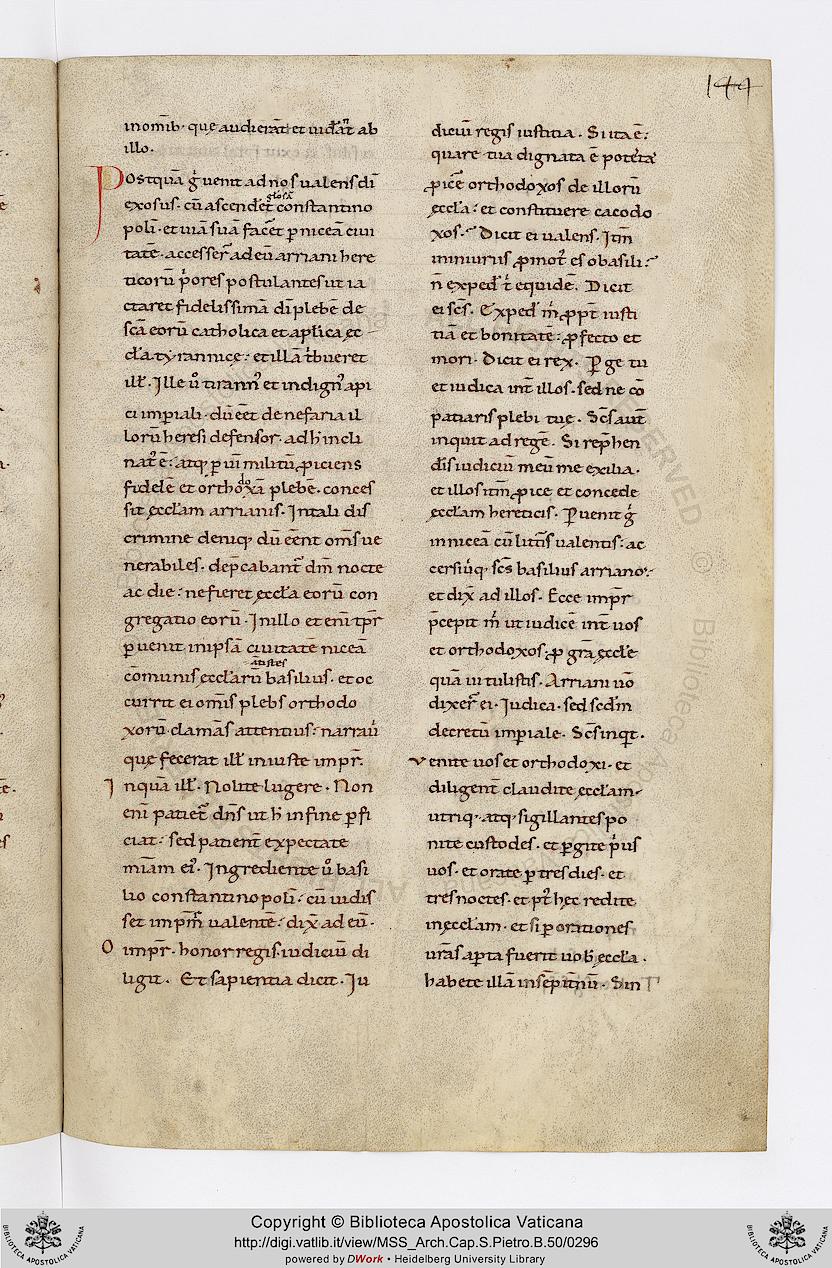 144
inom̄ib· que audierāt et uid̄at ab
illo·
Postquā ġ uenit ad nos ualens dī
exosus· cū ascender&constantino
poli· et uiā suā facēt p̱ niceā ciui
tatē· accesser̄ ad eū arriani here
ticorū p̄ores postulantes ut ia
ctaret fidelissimā dī plebē de
scā eorū catholica et aplīca ec
cl̄a tyrannicę· et illā t̄bueret
ill̄· Ille ū tirann᾽ et indign᾽ api
ci imp̱iali· dū eēt de nefaria il
lorū heresi defensor· ad h̄ incli
nat᾽ ē· atq· p̱ uī militū p̱iciens
fidelē et orthodoxā plebē· conces
sit ęccl̄am arrianis· In tali dis
crimine deniq· dū eēnt om̄s ue
nerabiles· dep̄cabant᾽ dm̄ nocte
ac die· ne fieret ęccl̄a eorū con
gregatio eorū· In illo et enī tp̄r
p̱uenit in ipsā ciuitatē niceā
antistes
cōmunis ęccl̄arū basilius· et oc
currit ei om̄is plebs orthodo
xorū clamās attentius· narraū
que fecerat ill̄ iniuste imp̄r·
Inquā ill̄· Nolite lugere· Non
enī patiet᾽ dn̄s ut h̄ in fine p̱fi
ciat· sed patient᾽ expectate
mīam ei᾽· Ingrediente ū basi
lio constantinopolī· cū uidis
set imp̄m̄ ualentē· dix̄ ad eū·
O imp̄r· honor regis iudiciū di
ligit· Et sapientia dicit· Iu
diciū regis iustitia· Si ita ē·
quare tua dignata ē potēta
p̱icē orthodoxos de illorū
ęccl̄a· et constituere cacodo
xos· Dicit ei ualens· Itm̄
iniuriis p̱mot᾽ es o basili·
n̄ exped᾽ t̄ equidē· Dicit
ei scs̄· Exped᾽ m̄ p̱pt᾽ iusti
tiā et bonitatē· p̱fecto et
mori· Dicit ei rex· P̱ge tu
et iudica int̄ illos· sed ne cō
patiaris plebi tuę· Scs̄ aut̄
inquit ad regē· Si rep̄hen
dis iudiciū meū me exilia·
et illos itm̄ p̱ice et concede
ęccl̄am hereticis· P̱uenit ġ
in niceā cū litt̄is ualentis· ac
cersiuq· scs̄ basilius arrianos·
et dix̄ ad illos· Ecce imp̄r
p̄cepit m̄ ut iudicē int̄ uos
et orthodoxos· p̱ grā ęccl̄e
quā ui tulistis· Arriani uō
dixer̄ ei· Iudica· sed scdm̄
decretū imp̱iale· Scs̄ inqt·
Venite uos et orthodoxi· et
diligent᾽ claudite ęccl̄am·
utriq· atq· sigillantes po
nite custodes· et p̱gite p̄us
uos· et orate p̱ tres dies· et
tres noctes· et pt᾽ hęc redite
in ęccl̄am· et si p̱ orationes
urās ap̱ta fuerit uob̄ ęccl̄a·
habete illā in sēpit̄nū· Sin
Copyright © Biblioteca Apostolica Vaticana
http://digi.vatlib.it/view/MSS_Arch.Cap.S.Pietro.B.50/0296
powered by DWork • Heidelberg University Library